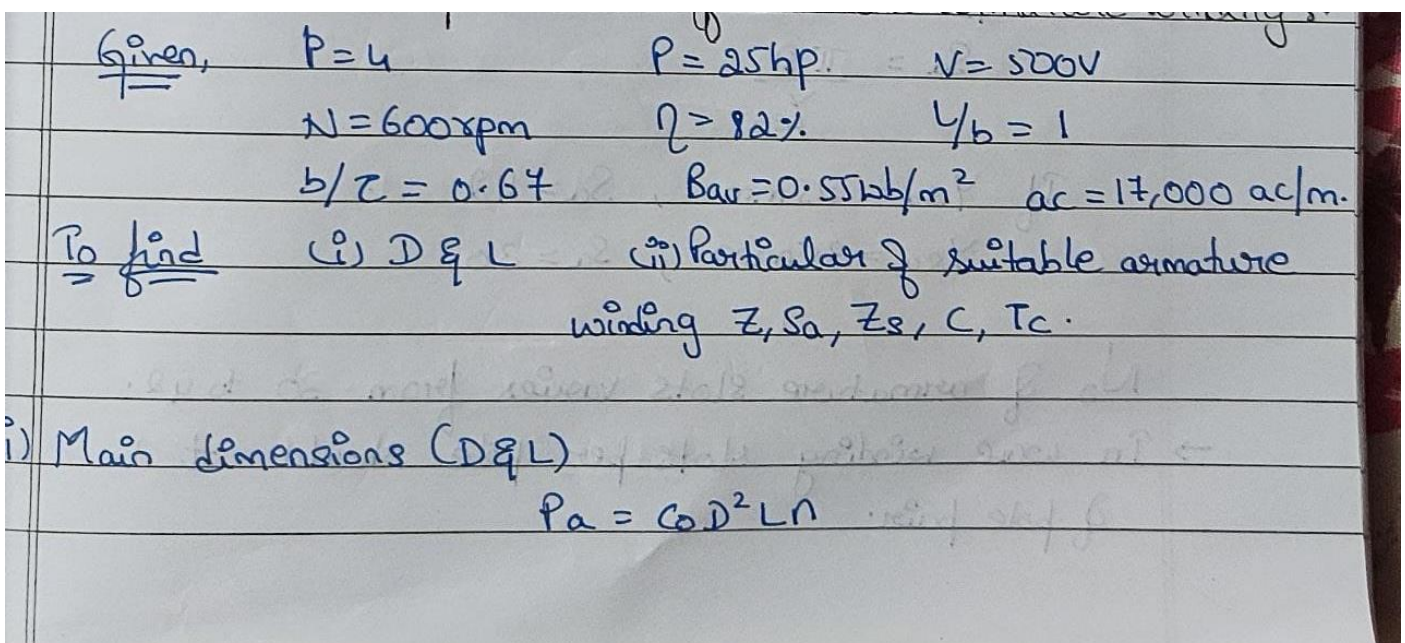 Given, P=4 P=25hp. V=500V
N=600rpm η=82% L/b=1
b/τ=0.67 Bav=0.55wb/m² ac=17,000 ac/m.
To find (i) D & L (ii) Particular of suitable armature
winding Z, Sa, Zs, C, Tc.
i) Main dimensions (D&L)
Pa = CoD²Ln